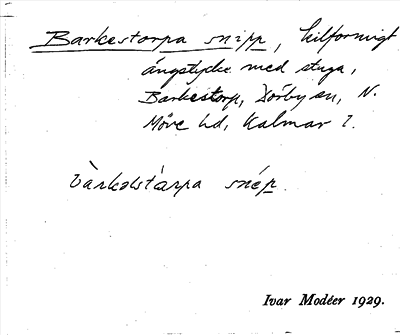 Barkestorpa snipp, kilformigt
ängstycke med stuga,
Barkestorp, Dörby sn, N.
Möre hd, Kalmar l.
bàrkəstárpa snép.
Ivar Modéer 1929.